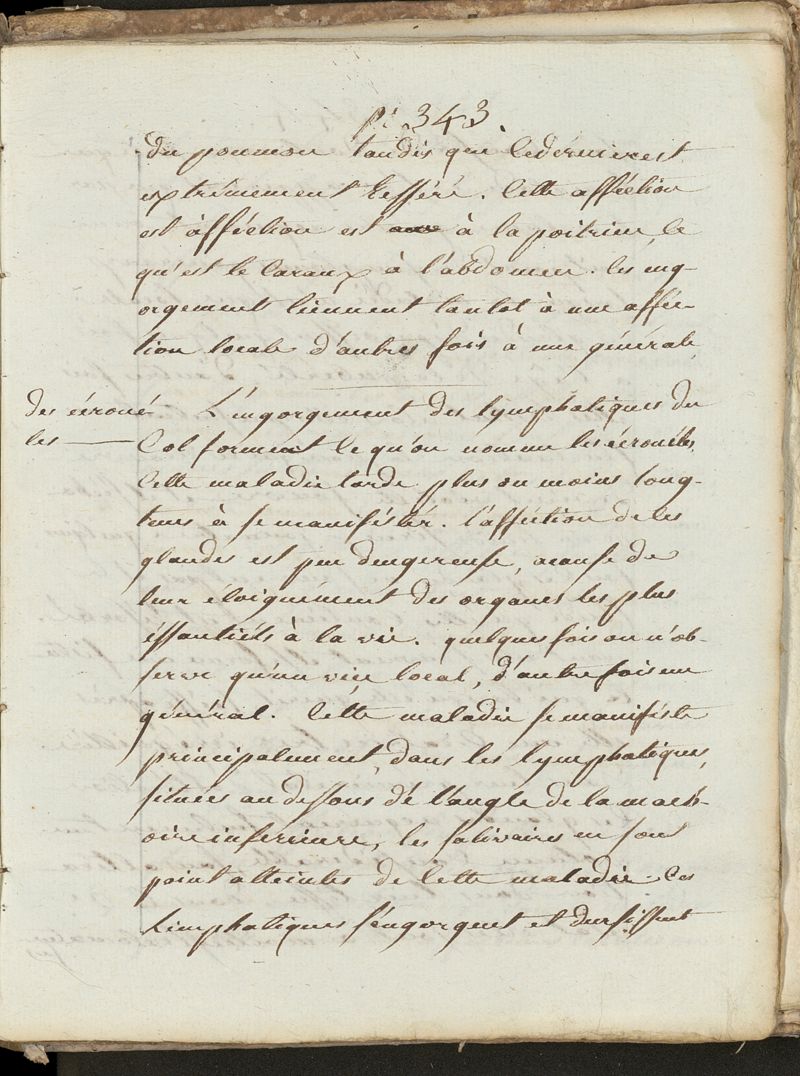 pe. 343.
du poumon tandis que le dérnier est
extrêmement réssérré. Cette afféction
est afféction est à la poitrine, ce
qu'est le Careaux à l'abdomen. les eng-
orgement tiennent tantot à une affec-
tion locale d'autres fois à une générale,
des écroué-
les
L'engorgement des lymphatiques du
Col forment ce qu'on nomme les écrouéles,
Cette maladie tarde plus ou moins long-
tems à se manifester. l'affection de ces
glandes est peu dengereuse, acause de
leur éloignément des organes les plus
éssantiéls à la vie. quelques fois on n'ob-
serve qu'un vice local, d'autre fois un
général. Cette maladie se manifeste
principalement, dans les lymphatiques,
situées au dessous dé l'angle de la mach-
oire inferieure, les salivaires en sont
point atteintes de Cette maladie. Ces
Limphatiques s'éngorgent et dursissent